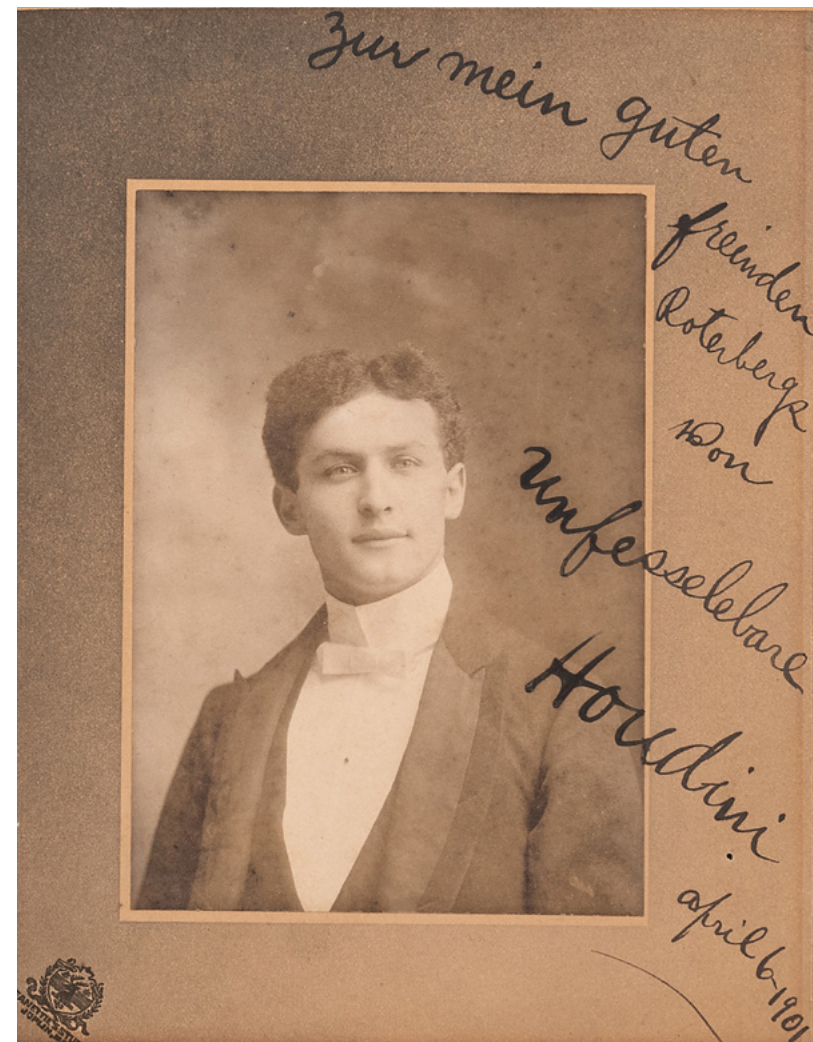 Zur mein guten
freinden
Roterbergs
von
Unfesselebare
Houdini
april 6-1901